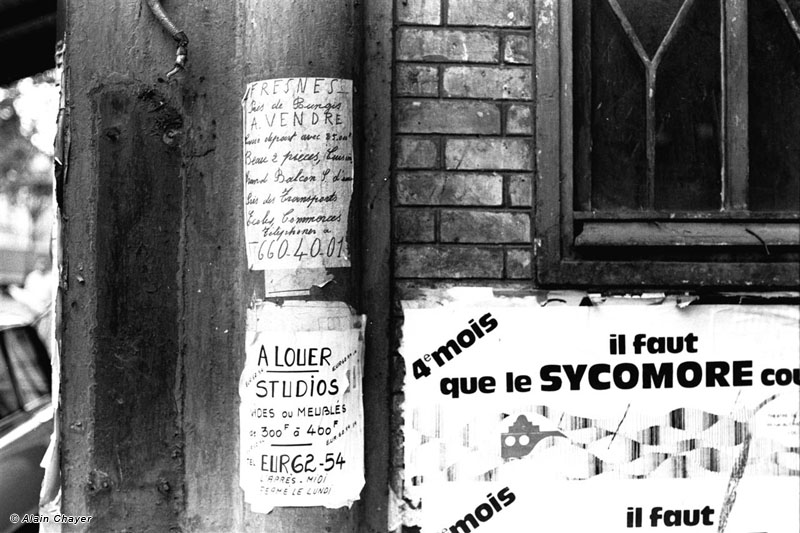 FRESNES
Près de Rungis
A VENDRE
Beau 2 pièces,
Balcon
Près des Transports
Ecoles, Commerces
Téléphoner à
660-40-01
A LOUER
STUDIOS
OU MEUBLÉS
300F à 400F
EUR 62-54
L'APRÈS-MIDI
FERMÉ LE LUNDI
4e mois
il faut
que le SYCOMORE cou
4e mois
il faut
© Alain Chayer